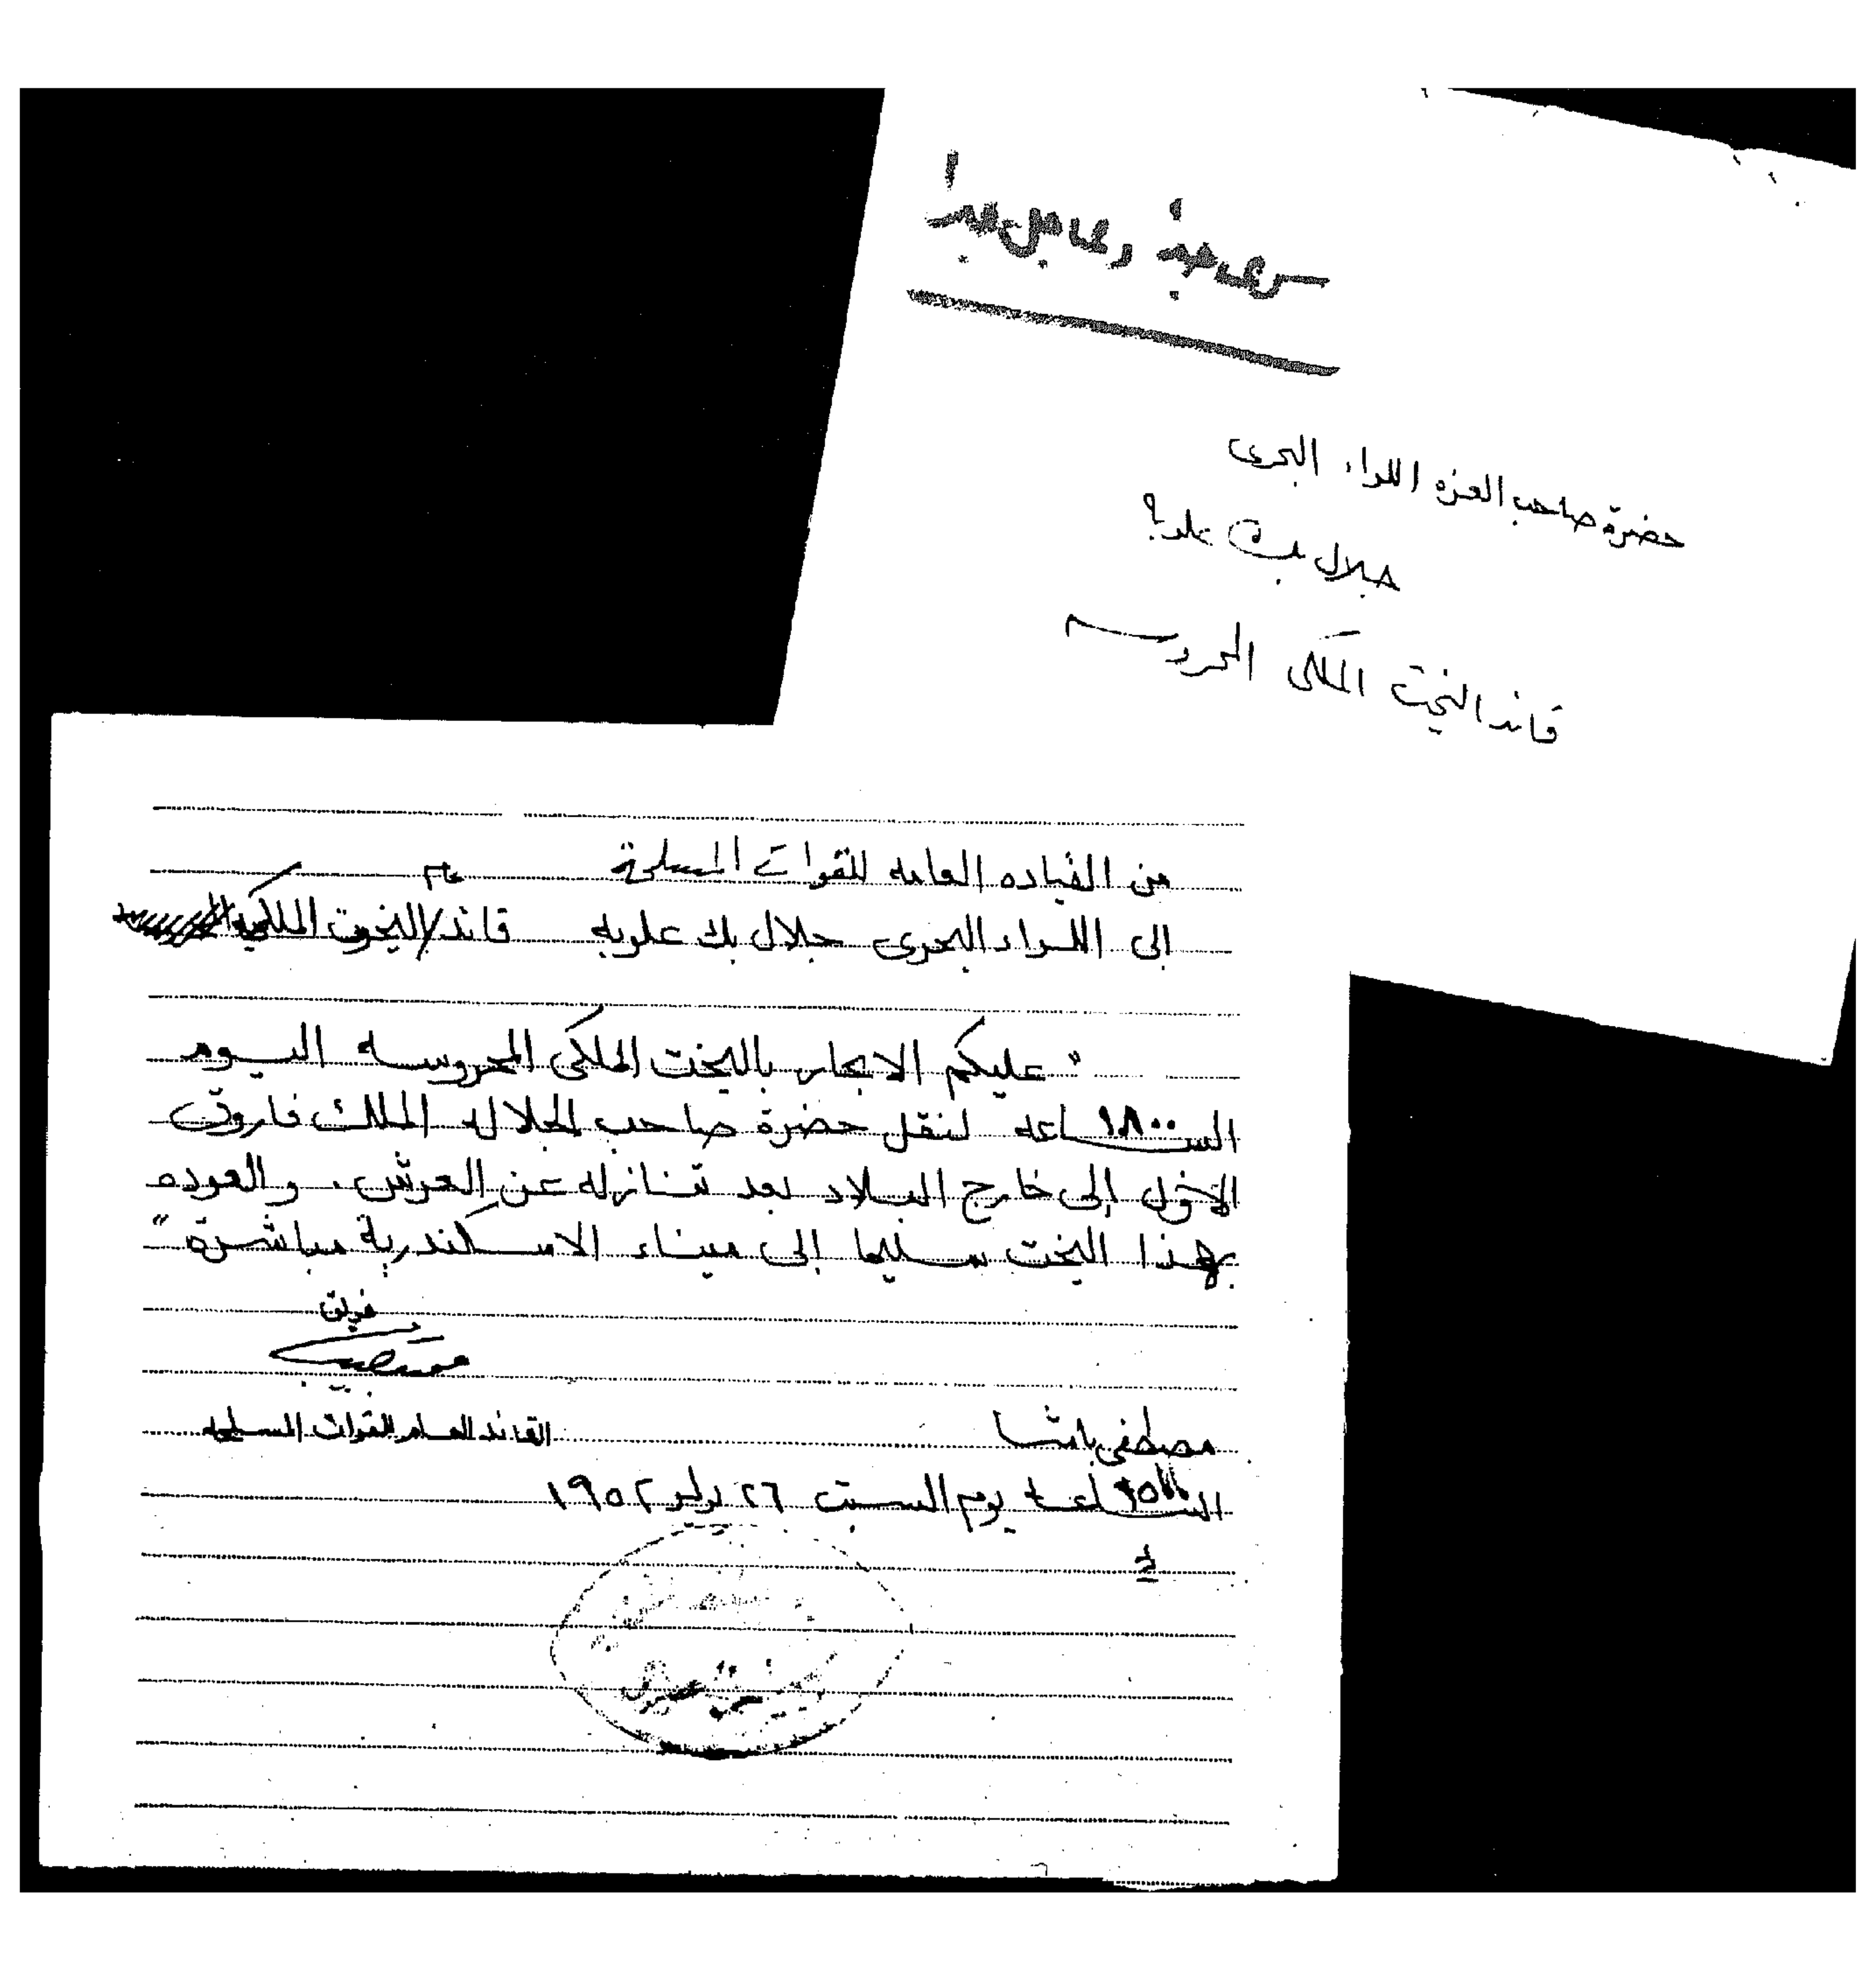 سرى وعاجل جدا
حضرة صاحب العزه اللواء البحرى
جلال بك علوبه
قائد اليخت الملكى المحروسه
من القياده العامه للقوات المسلحة
الى اللواء البحرى جلال بك علوبه قائد عام اليخوت الملكيه
" عليكم الابحار باليخت الملكى المحروسه اليوم
الساعه ١٨٠٠ لنقل حضرة صاحب الجلاله الملك فاروق
الاول إلى خارج البلاد بعد تنازله عن العرش. والعوده
بهذا اليخت سليما إلى ميناء الاسكندرية مباشرة "
فريق
مصطفى باشا القائد العام للقوات المسلحه
الساعة يوم السبت ٢٦ يوليو ١٩٥٢